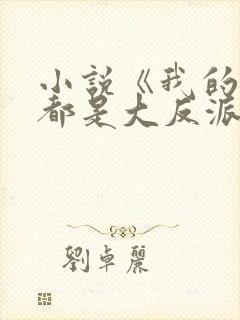 小說《我的
都是大反派
劉卓麗